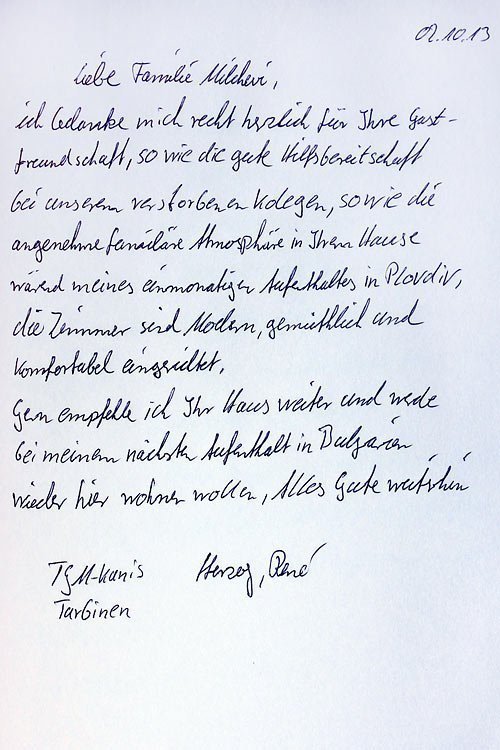 02.10.13
Liebe Familie Milchevi,
ich bedanke mich recht herzlich für Ihre Gast-
freundschaft, so wie die gute Hilfsbereitschaft
bei unserem verstorbenen Kolegen, sowie die
angenehme familiäre Atmosphäre in Ihrem Hause
wärend meines einmonatigen Aufenthaltes in Plovdiv,
die Zimmer sind Modern, gemüthlich und
Komfortabel eingerichtet.
Gern empfehle ich Ihr Haus weiter und werde
bei meinem nächsten Aufenthalt in Bulgarien
wieder hier wohnen wollen, Alles Gute weiterhin
TGM-Kanis Herzog, René
Turbinen